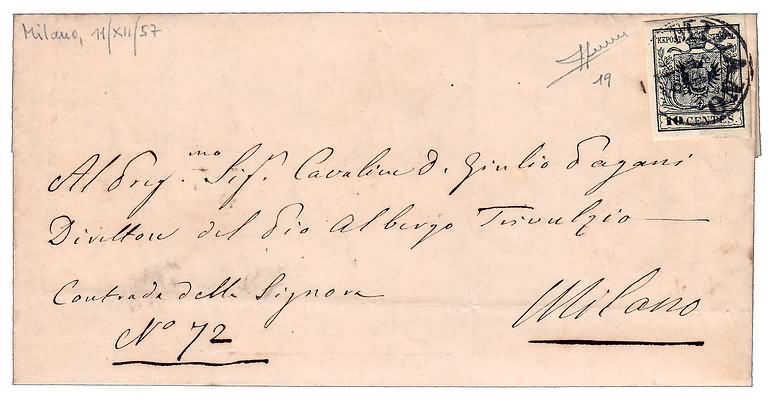 Milano, 11/XII/57
19
KKPOST
10 CENTES.
MILANO
Al Preg.mo Sig.r Cavaliere D. Giulio Pagani
Direttore del Pio Albergo Trivulzio
Contrada della Signora
No 72
Milano